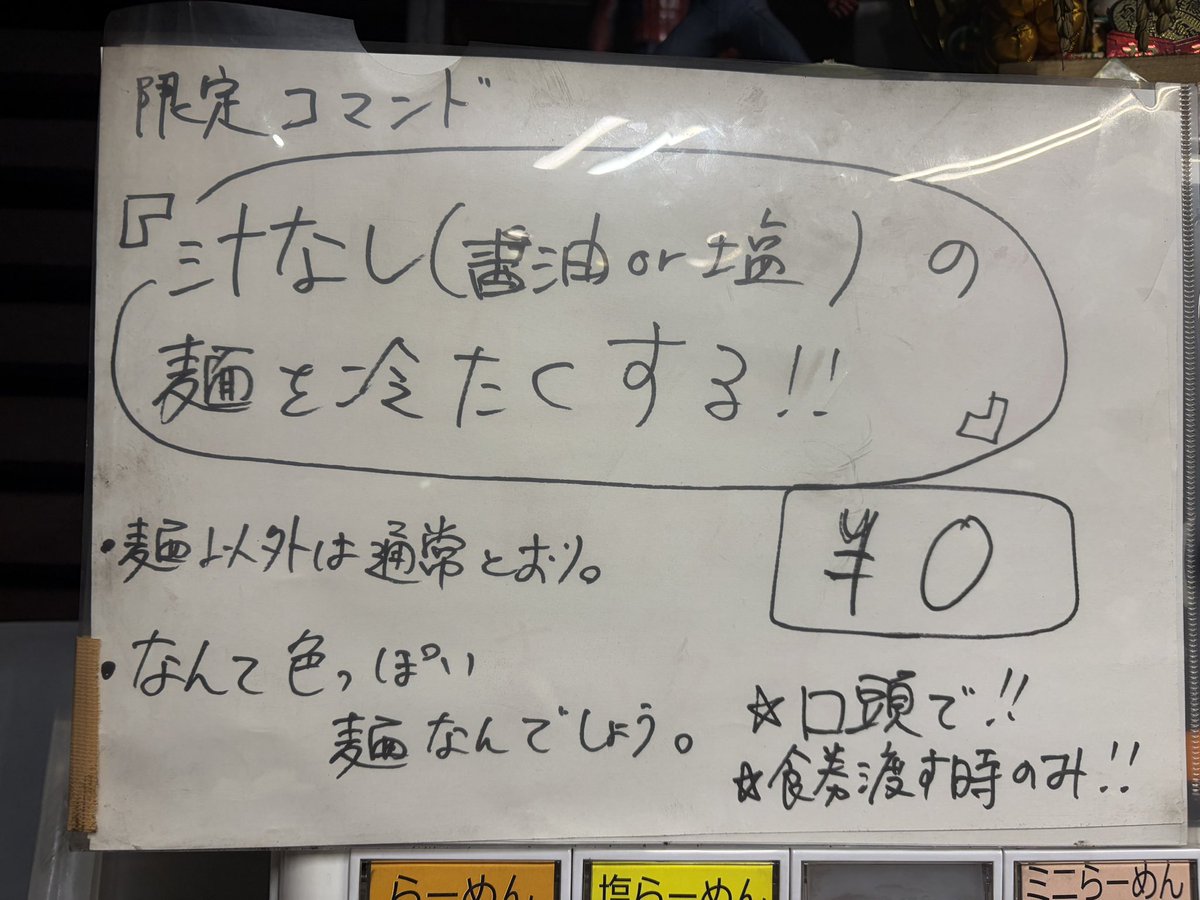 限定コマンド
『汁なし(醤油or塩)の
麺を冷たくする!!』
¥0
・麺以外は通常とおり。
・なんて色っぽい
麺なんでしょう。
☆口頭で!!
☆食券渡す時のみ!!
らーめん
塩らーめん
ミニらーめん